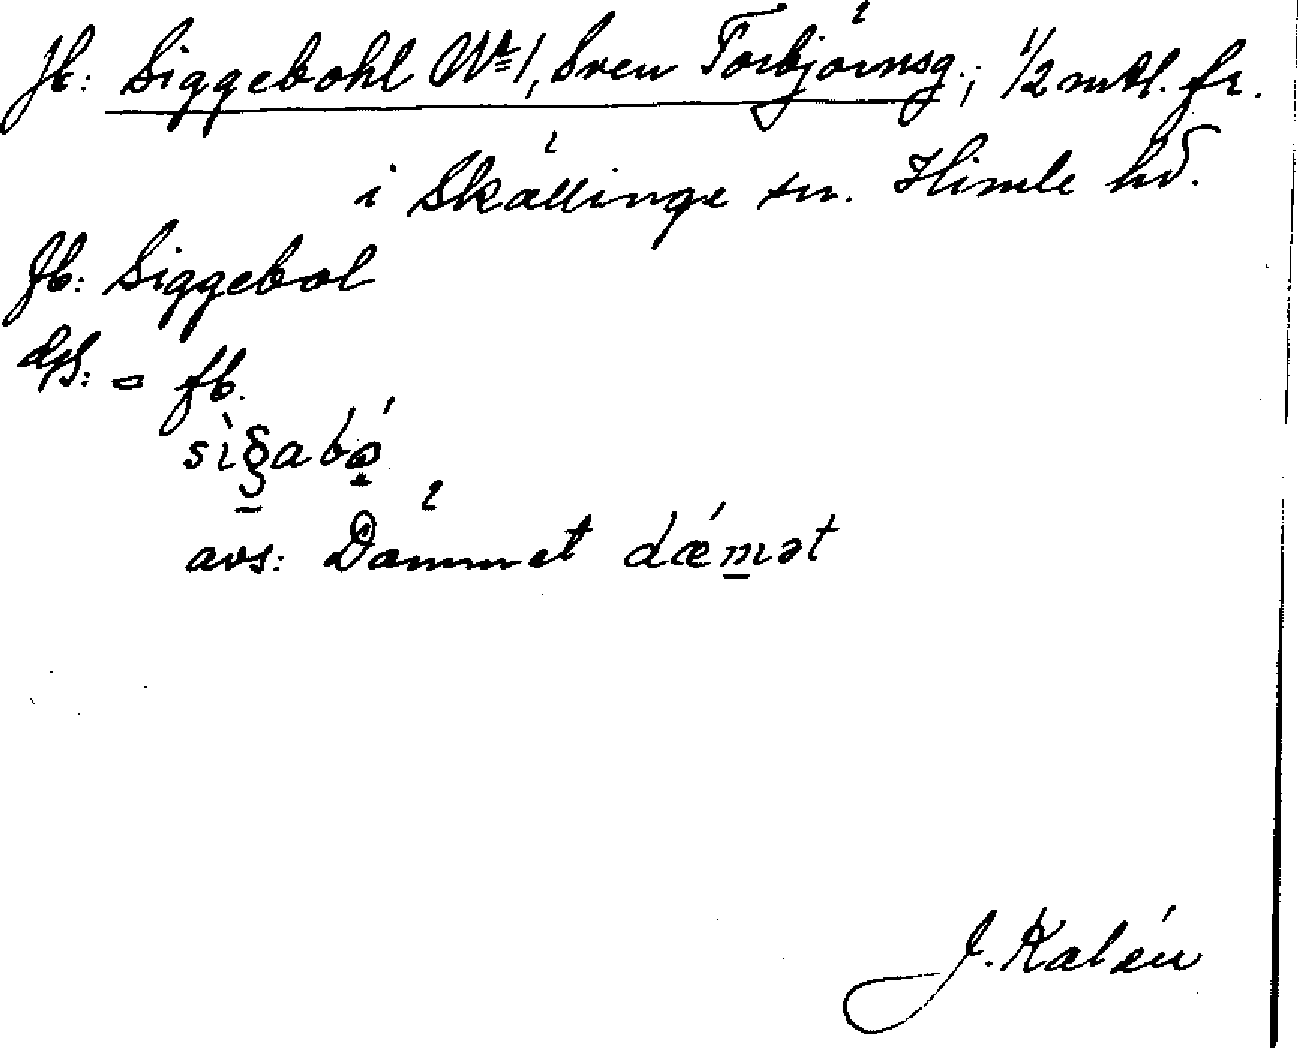 Jb: Siggebohl Nr 1, Sven Torbjörnsg.; 1/2 mtl. fr.
i Skällinge sn. Himle hd.
fb: Siggebol
dpb: = fb.
sìgabǿ
avs: Dämmet dǽmət
J. Kalén